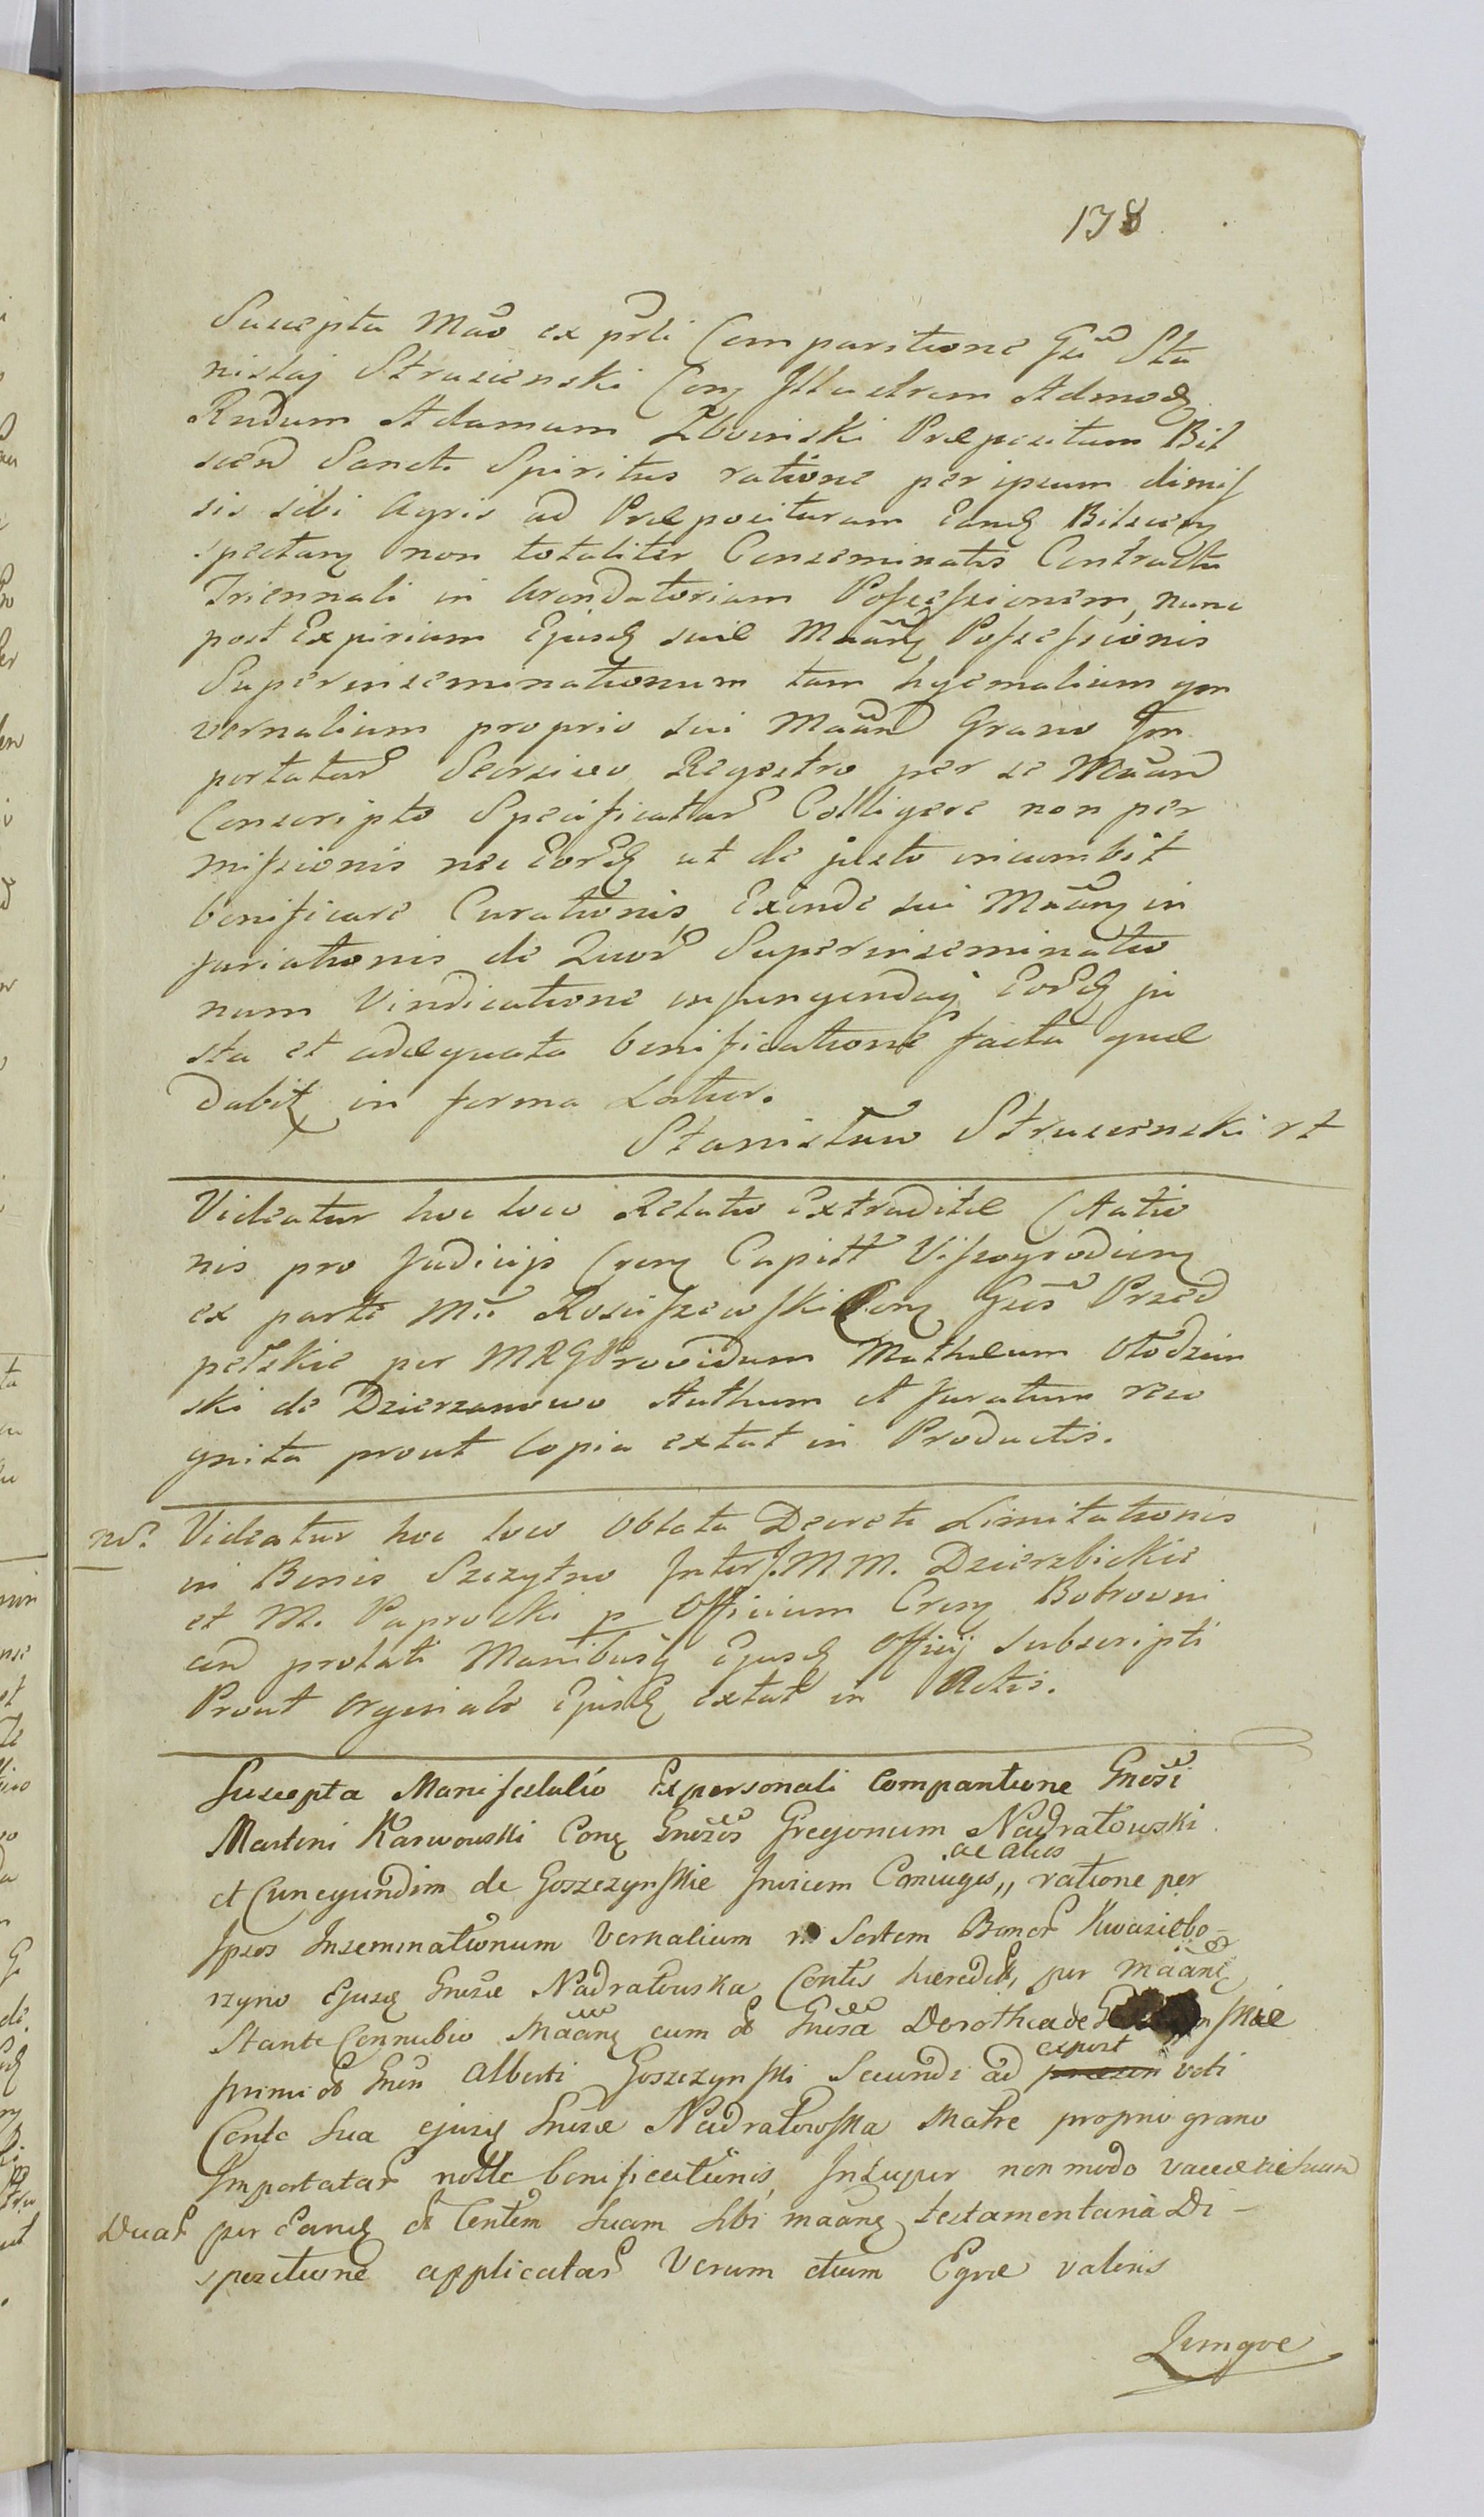 138
Suscepta Mão ex prli Comparitione Gsi Sta
nislaj Strusienski Con Illustrem Admod
Rndum Adamum Zboinski Præpositum Bil
scen Sancti Spiritus ratione per ipsum dimis
sis sibi Agris ad Præposituram Eand Bilscen
spectan non totaliter Conseminatis Contractu
Triennali in Arendatoriam Possessionem, nunc
post Expirium Ejusd suæ Maan Possessionis
Superinseminationum tam hyemalium qm
vernalium proprio sui Maan Grano Im
portatar Seorsivo Regestro per se Maan
Conscripto Specificatar Colligere non per
missionis nec Eord ut de justo incumbit
bonificare Curationis, Exinde sui Maan in
juriationis de Quor Superinseminatio
num Vindicatione injungendaq Eord ju
sta et adæquata bonificatione facta quæ
dabit in forma Latior.
Stanisław Strusienski rt
Videatur hoc loco Relatio Extraditæ Citatio
nis pro Judicijs Cren Capitt Vissogrodien
ex parte Mci Rosciszewski Con Gsos Przed
pełskie per MRG Providum Mathæum Włodzim
ski de Dzierzanowo Authum et Juratum reco
gnita prout Copia extat in Productis.
no. Videatur hoc loco Oblata Decreti Limitationis
in Bonis Szczytno Inter J. M M. Dzierzbickie
et M. Paprocki p Officium Cren Bobrovni
cen prolati Manibusq Ejusd Officij subscripti
Prout Orginale Ejusd extat in Actis.
Suscepta Manifestatio Ex personali Comparitione Gnosi
Martini Karwowski Con Gnosos Gregorium Nadratowski
ac alios
et Cunegundim de Goszczynskie Invicem Coniuges,, ratione per
Ipsos Inseminationum Vernalium in Sortem Bonor Kwasiebo-
rzyno Ejusd Gnosæ Nadratowska Contis hæredit, per Maane
Stante Connubio Maane cum et Gnosa Dorothea de G nskie
primi et Gnen Alberti Goszczynski Secundi ad expost voti
Conte Sua ejusd Gnosæ Nadratowska Matre proprio grano
Importatar nolle bonificationis, Insuper non modo vaccæ
Duar per Eand et Contem Suam Sibi maane testamentaria Di-
spositione applicatar Verum etiam Equæ valoris
Zumque